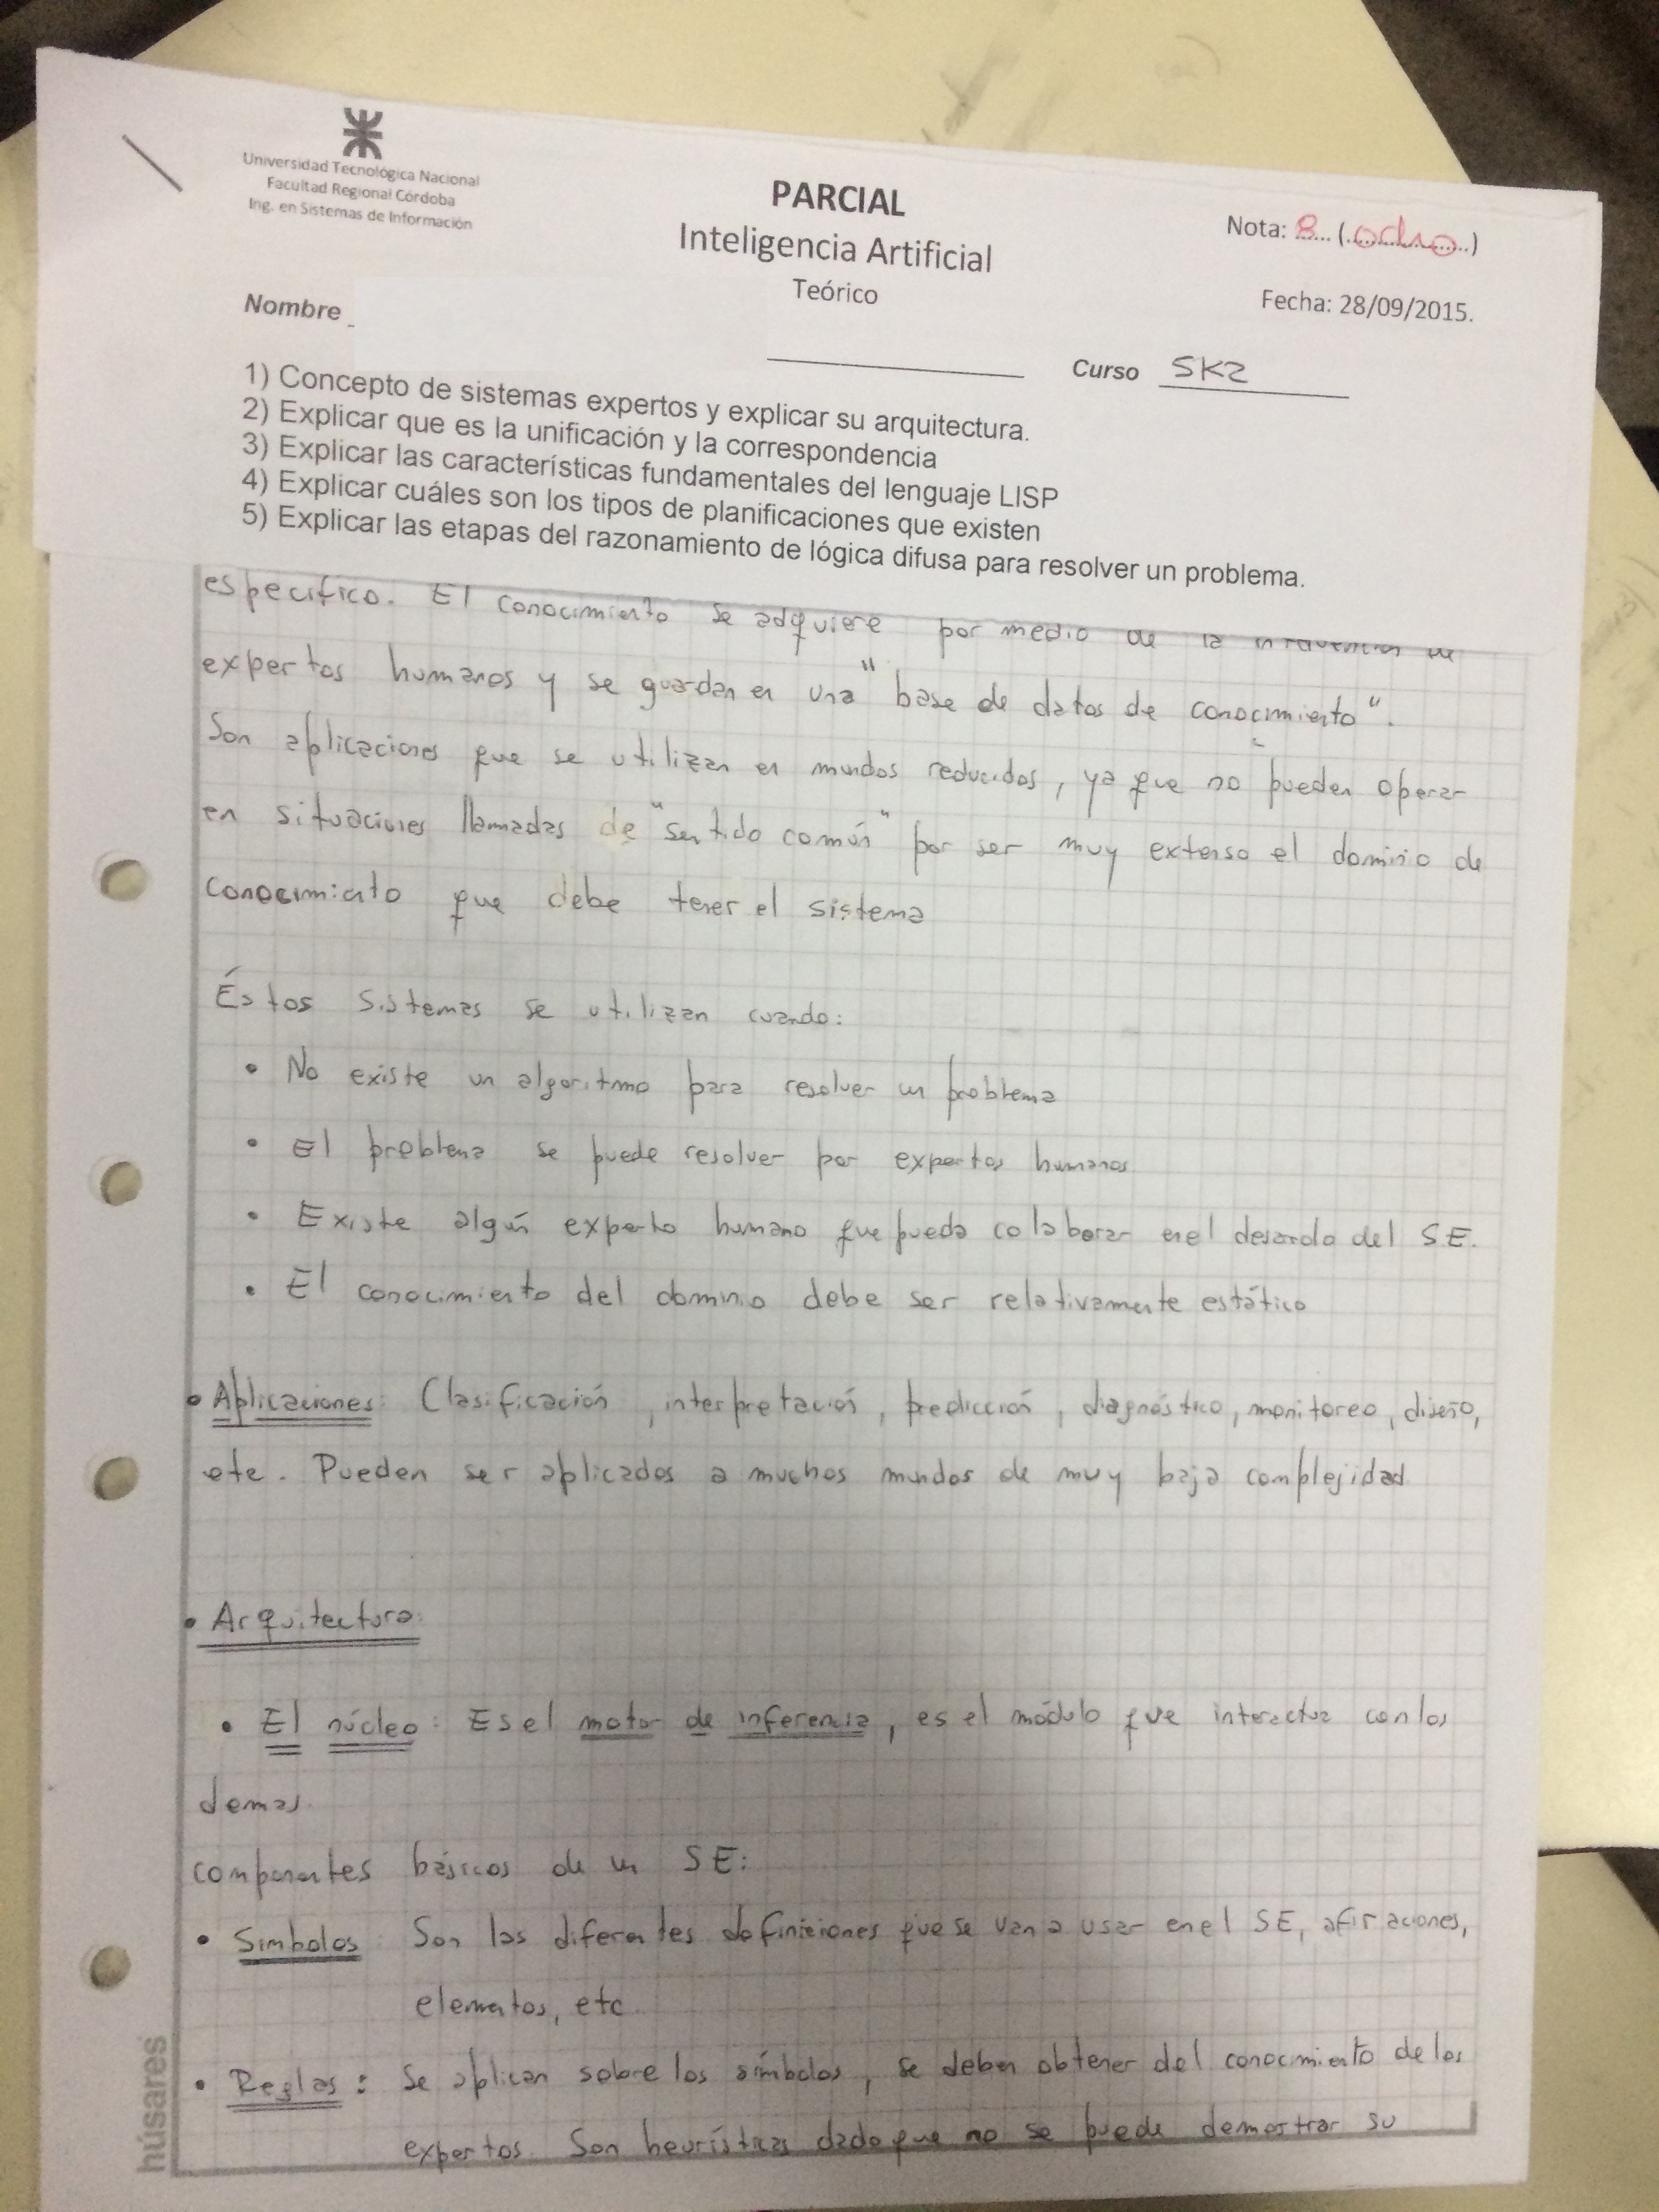 Universidad Tecnológica Nacional
Facultad Regional Córdoba
Ing. en Sistemas de Información
PARCIAL
Inteligencia Artificial
Teórico
Nota: 8 (ocho)
Fecha: 28/09/2015.
Nombre
Curso 5K2
1) Concepto de sistemas expertos y explicar su arquitectura.
2) Explicar que es la unificación y la correspondencia
3) Explicar las características fundamentales del lenguaje LISP
4) Explicar cuáles son los tipos de planificaciones que existen
5) Explicar las etapas del razonamiento de lógica difusa para resolver un problema.
específico. El conocimiento se adquiere por medio de la
expertos humanos y se guardan en una "base de datos de conocimiento".
Son aplicaciones que se utilizan en mundos reducidos, ya que no pueden operar
en situaciones llamadas de "sentido común" por ser muy extenso el dominio de
conocimiento que debe tener el sistema
Éstos sistemas se utilizan cuando:
• No existe un algoritmo para resolver un problema
• El problema se puede resolver por expertos humanos
• Existe algún experto humano que pueda colaborar en el desarrollo del SE.
• El conocimiento del dominio debe ser relativamente estático
• Aplicaciones: Clasificación, interpretación, predicción, diagnóstico, monitoreo, diseño,
etc. Pueden ser aplicados a muchos mundos de muy baja complejidad
• Arquitectura:
• El núcleo: Es el motor de inferencia, es el módulo que interactua con los
demas
componentes básicos de un SE:
• Simbolos: Son las diferentes definiciones que se van a usar en el SE, afiraciones,
elementos, etc
• Reglas: Se aplican sobre los símbolos, se deben obtener del conocimiento de los
expertos. Son heurísticas dado que no se puede demostrar su
húsares